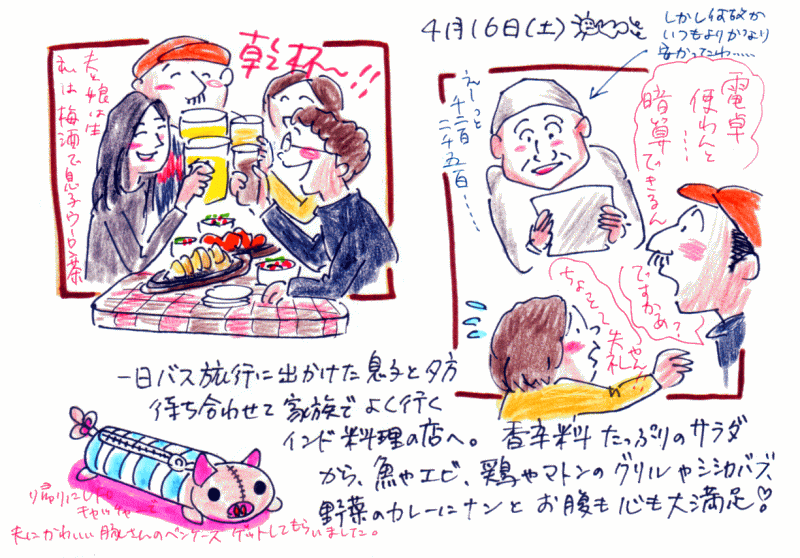 4月16日(土)
しかし何故か
いつもよりかなり
安かったわ……
乾杯〜!!
夫と娘は生
私は梅酒で息子ウーロン茶
えーっと
千二百
二千五百……
電卓
使わんと……
暗算できるん
ですかぁ?
ちょっと失礼
やん!!
一日バス旅行に出かけた息子と夕方
待ち合わせて家族でよく行く
インド料理の店へ。香辛料たっぷりのサラダ
から、魚やエビ、鶏やマトンのグリルやシシカバブ、
野菜のカレーにナンとお腹も心も大満足!
キャッチャーで
夫にかわいい豚さんのペンケースゲットしてもらいました。